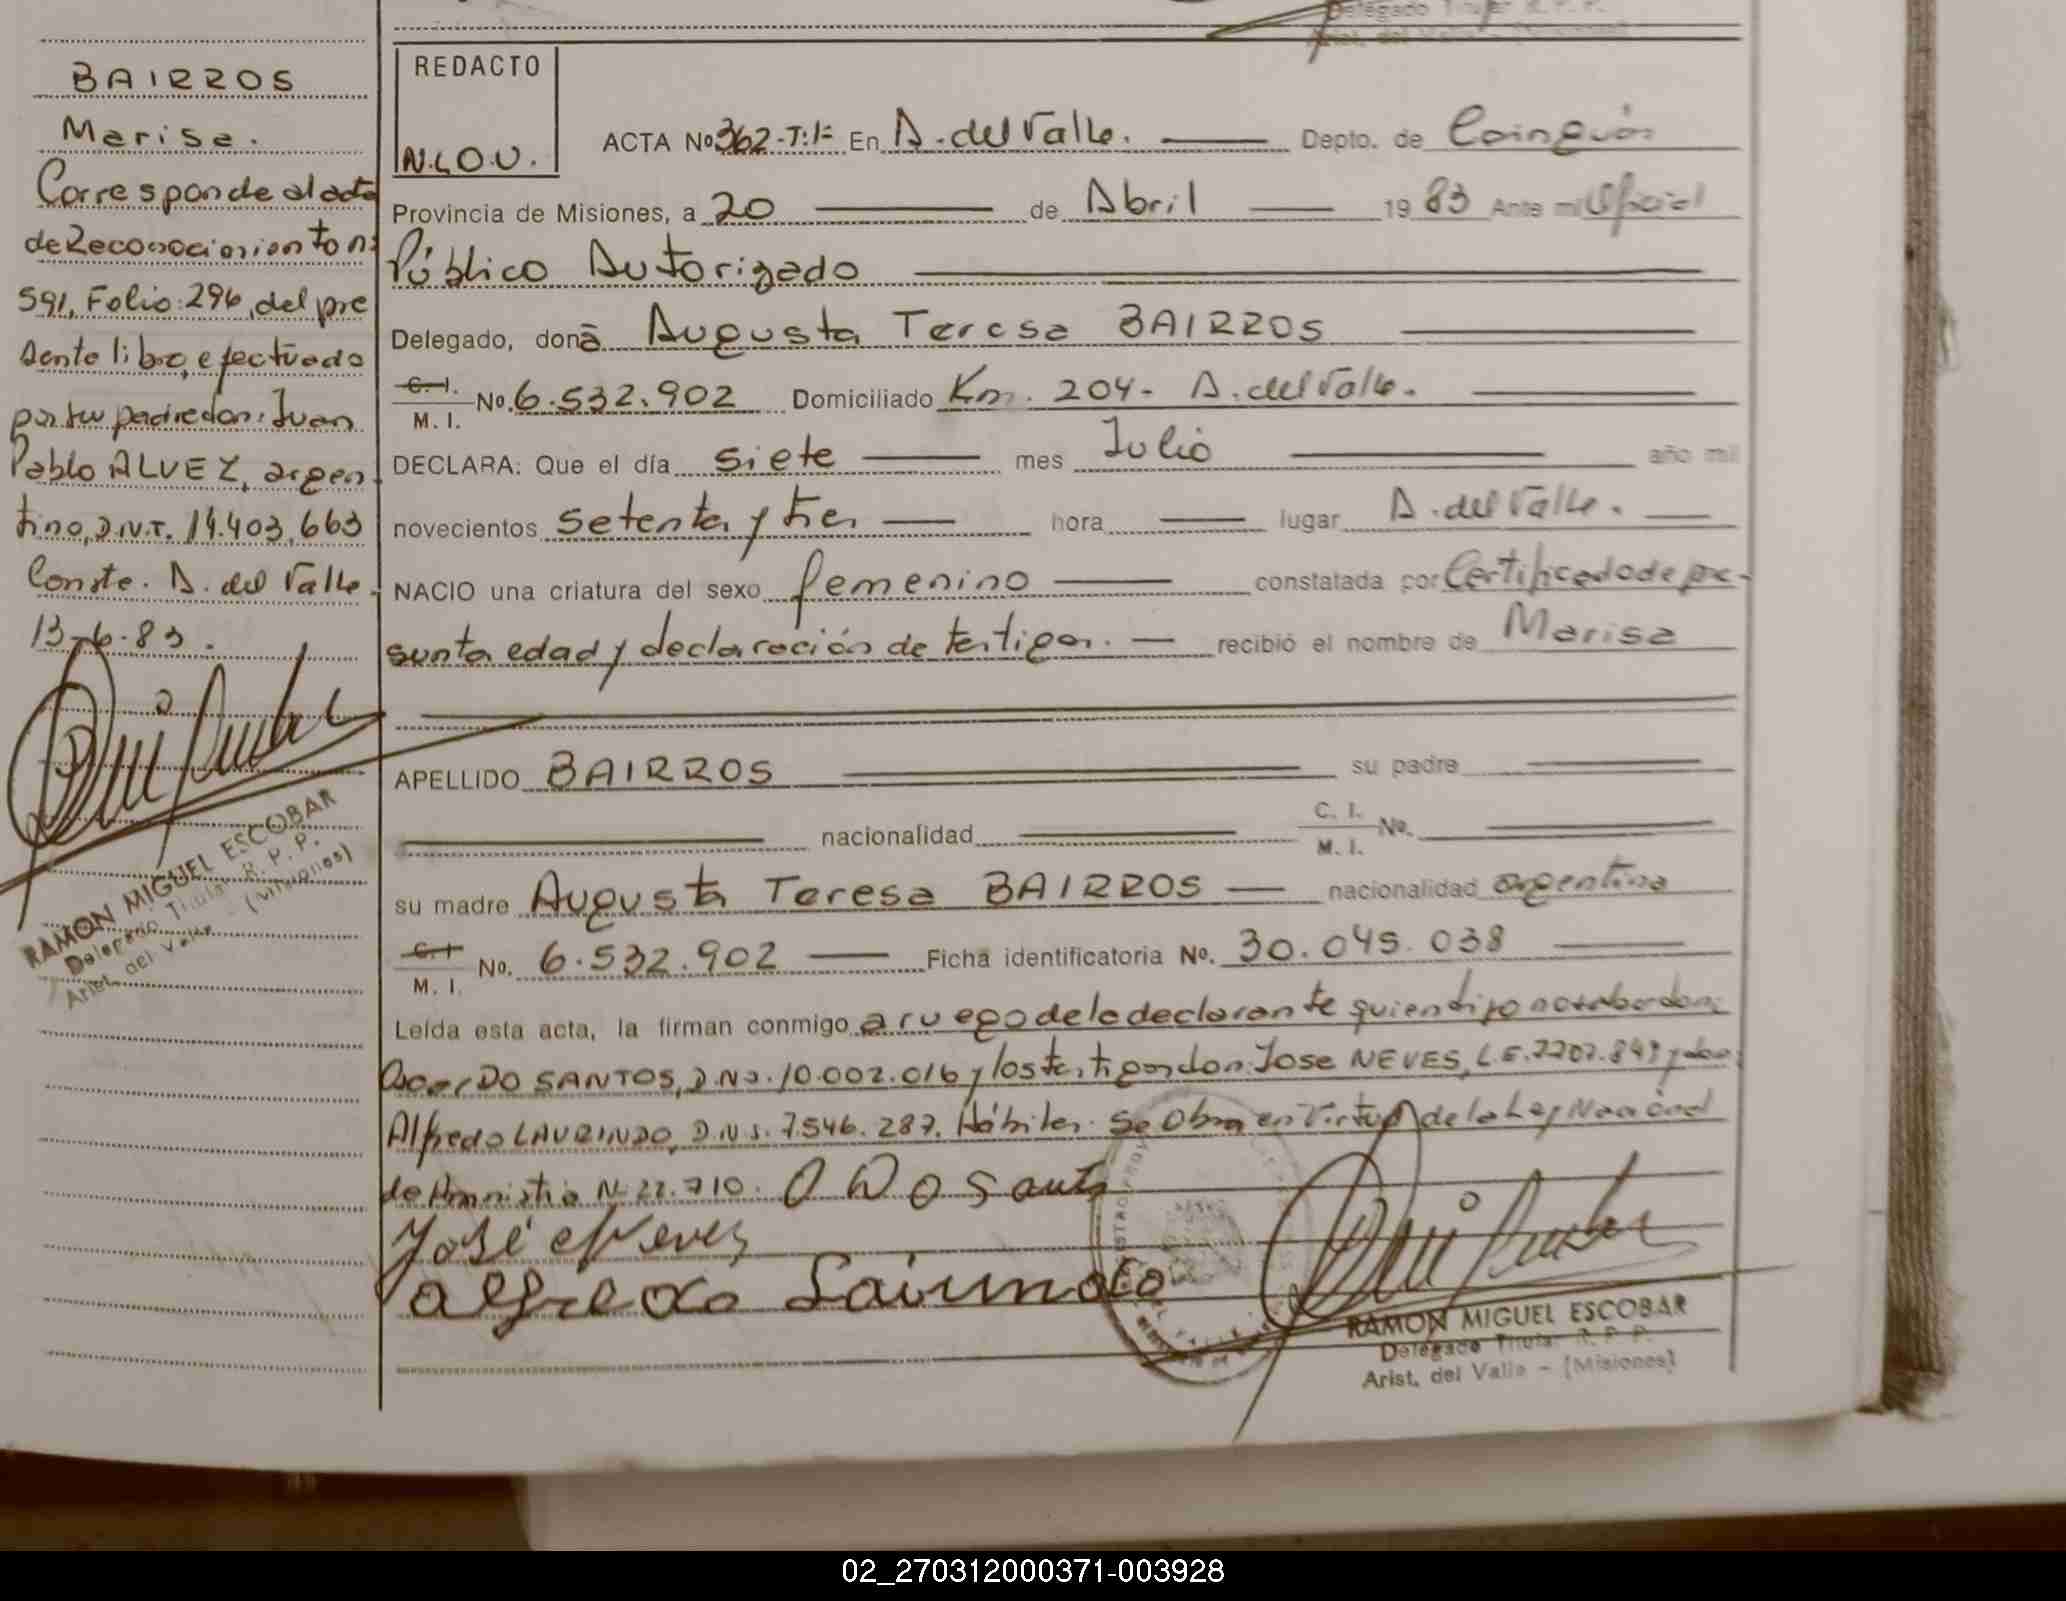 Delegado Titular R. P. P.
Arist. del Valle - (Misiones)
BAIRROS
Marisa.
Corresponde al acta
de Reconocimiento n:
591, Folio: 296, del pre
sente libro, efectuado
por su padre don: Juan
Pablo ALVEZ, argen
tino, D.N.I. 14.403.663
Conste. A. del Valle
13-6-83.
RAMON MIGUEL ESCOBAR
Delegado Titular R. P. P.
Arist. del Valle - (Misiones)
REDACTO
N.L.O.U.
ACTA Nº 362-T:1º En A. del Valle. Depto. de Cainguás
Provincia de Misiones, a 20 de Abril 1983 Ante mi Oficial
Público Autorizado
Delegado, donã Augusta Teresa BAIRROS
C. I.
M. I. No. 6.532.902 Domiciliado Km. 204- A. del Valle.
DECLARA: Que el día siete mes Julio año mil
novecientos setenta y tres hora lugar A. del Valle.
NACIO una criatura del sexo femenino constatada por Certificado de pre-
sunta edad y declaración de testigos. recibió el nombre de Marisa
APELLIDO BAIRROS su padre
nacionalidad C. I.
M. I. No.
su madre Augusta Teresa BAIRROS nacionalidad argentina
C. I
M. I. No. 6.532.902 Ficha identificatoria No. 30.045.038
Leída esta acta, la firman conmigo a ruego de la declarante quien dijo no saber don:
Oscar DO SANTOS, D.N.I. 10.002.016 y los testigos don: Jose NEVES, L.E. 7207.849 y don:
Alfredo LAURINDO, D.N.I. 7.546.287. Hábiles. Se Obra en Virtud de la Ley Nacional
de Amnistia N: 22.710. O Do Santo
José Neves
RAMON MIGUEL ESCOBAR
Delegado Titular R. P. P.
Arist. del Valle - (Misiones)
02_270312000371-003928